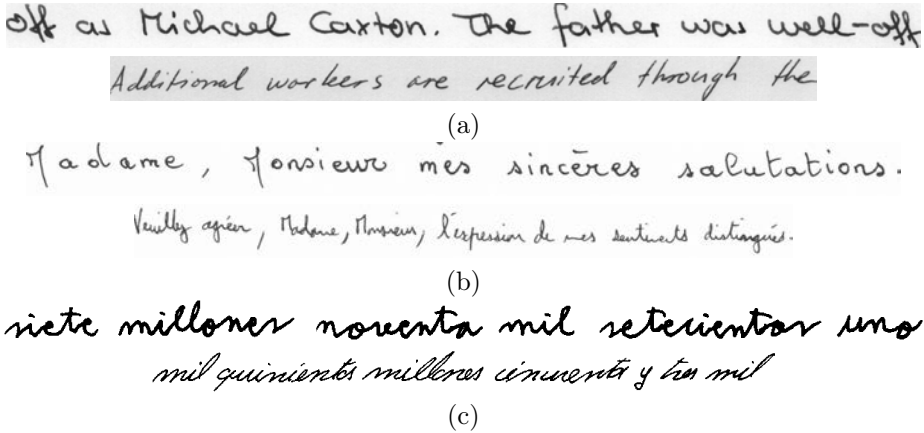 off as Michael Caxton. The father was well-off
Additional workers are recruited through the
(a)
Madame, Monsieur mes sincères salutations.
Veuillez agréer, Madame, Monsieur, l'expression de mes sentiments distingués.
(b)
siete millones noventa mil setecientos uno
mil quinientos millones cincuenta y tres mil
(c)